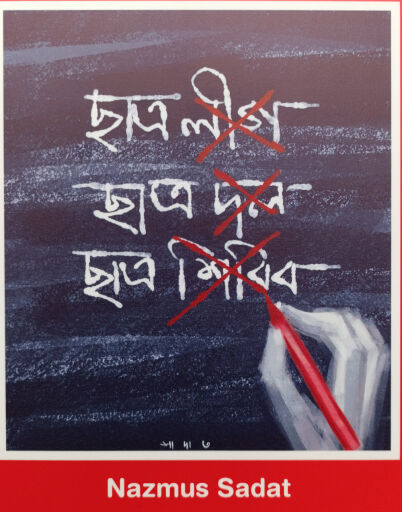 ছাত্র লীগ
ছাত্র দল
ছাত্র শিবির
সা দা ত
Nazmus Sadat